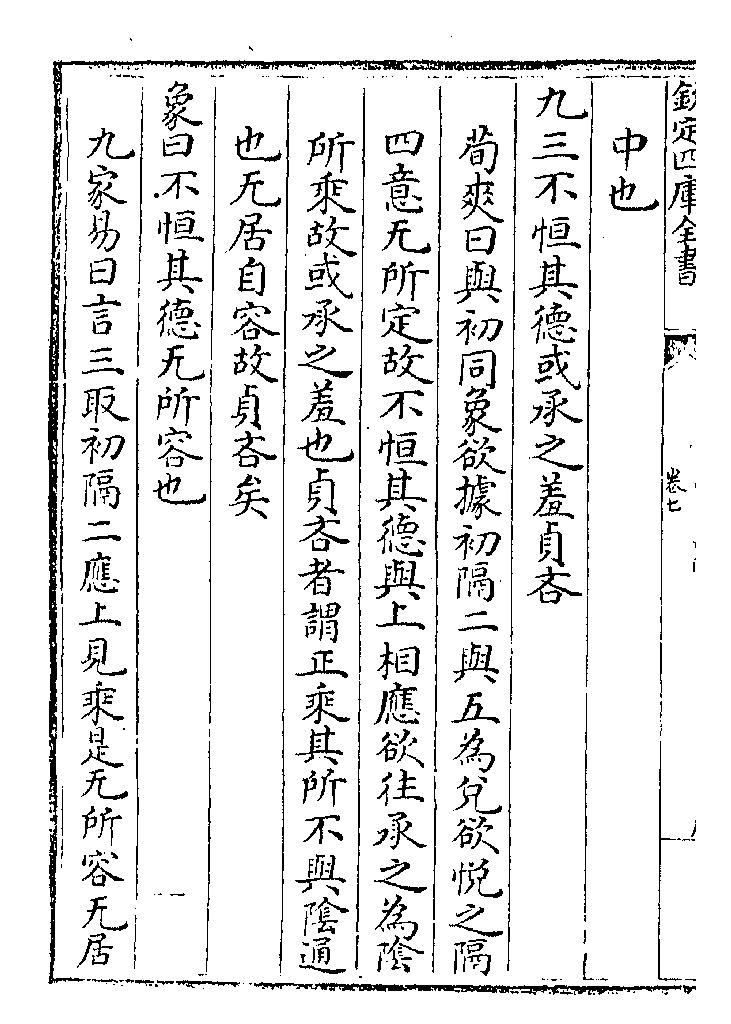 欽定四庫全書
卷七
中也
九三不恒其德或承之羞貞吝
荀爽曰與初同象欲據初隔二與五為兌欲悅之隔
四意无所定故不恒其德與上相應欲往承之為陰
所乘故或承之羞也貞吝者謂正乘其所不與陰通
也无居自容故貞吝矣
象曰不恒其德无所容也
九家易曰言三取初隔二應上見乘是无所容无居